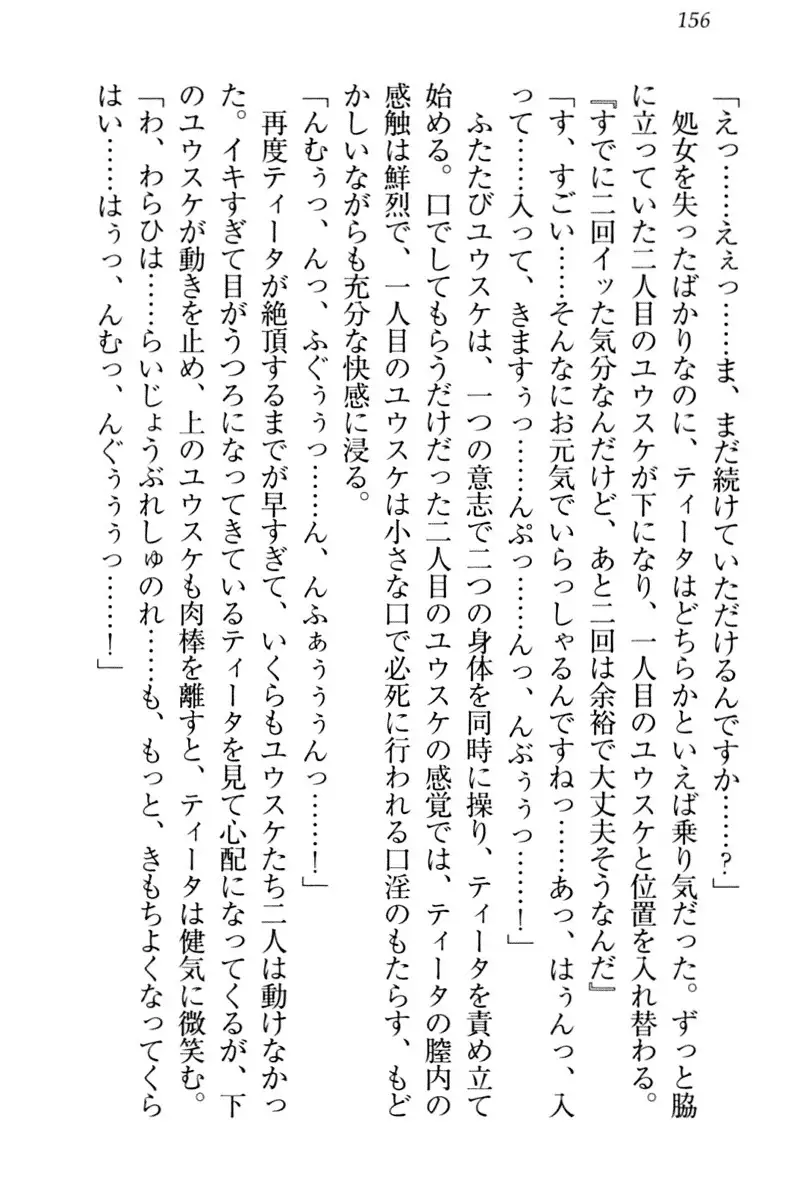 156
「えっ……えぇっ……ま、まだ続けていただけるんですか……？」
　処女を失ったばかりなのに、ティータはどちらかといえば乗り気だった。ずっと脇
に立っていた二人目のユウスケが下になり、一人目のユウスケと位置を入れ替わる。
『すでに二回イッた気分なんだけど、あと二回は余裕で大丈夫そうなんだ』
「す、すごい……そんなにお元気でいらっしゃるんですねっ……あっ、はぅんっ、入
って……入って、きますぅっ……んぷっ……んっ、んぶぅぅっ……！」
　ふたたびユウスケは、一つの意志で二つの身体を同時に操り、ティータを責め立て
始める。口でしてもらうだけだった二人目のユウスケの感覚では、ティータの膣内の
感触は鮮烈で、一人目のユウスケは小さな口で必死に行われる口淫のもたらす、もど
かしいながらも充分な快感に浸る。
「んむぅっ、んっ、ふぐぅぅっ……ん、んふぁぅぅぅんっ……！」
　再度ティータが絶頂するまでが早すぎて、いくらもユウスケたち二人は動けなかっ
た。イキすぎて目がうつろになってきているティータを見て心配になってくるが、下
のユウスケが動きを止め、上のユウスケも肉棒を離すと、ティータは健気に微笑む。
「わ、わらひは……らいじょうぶれしゅのれ……も、もっと、きもちよくなってくら
はい……はぅっ、んむっ、んぐぅぅぅっ……！」